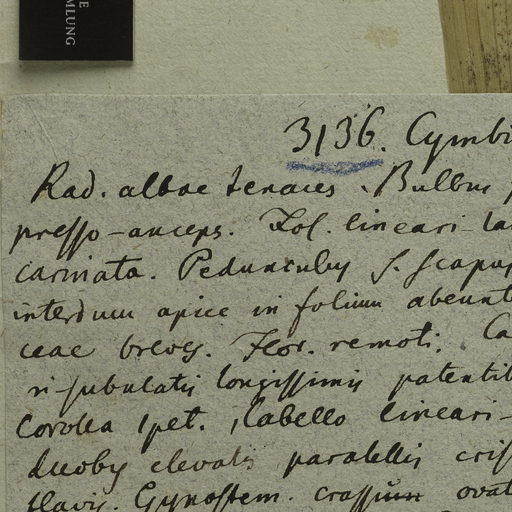 E
MLUNG
3136. Cymbi
Rad. albae tenaces. Bulbus
presso-anceps. Fol. lineari-la
carinata. Pedunculus s. scapus
interdum apice in folium abeunt
ceae breves. Flor. remoti. Ca
ri-subulatis longissimis patentib
Corolla 1pet. labello lineari-
duobus elevatis parallelis cris
flavis. Gynostem. crassum ovat